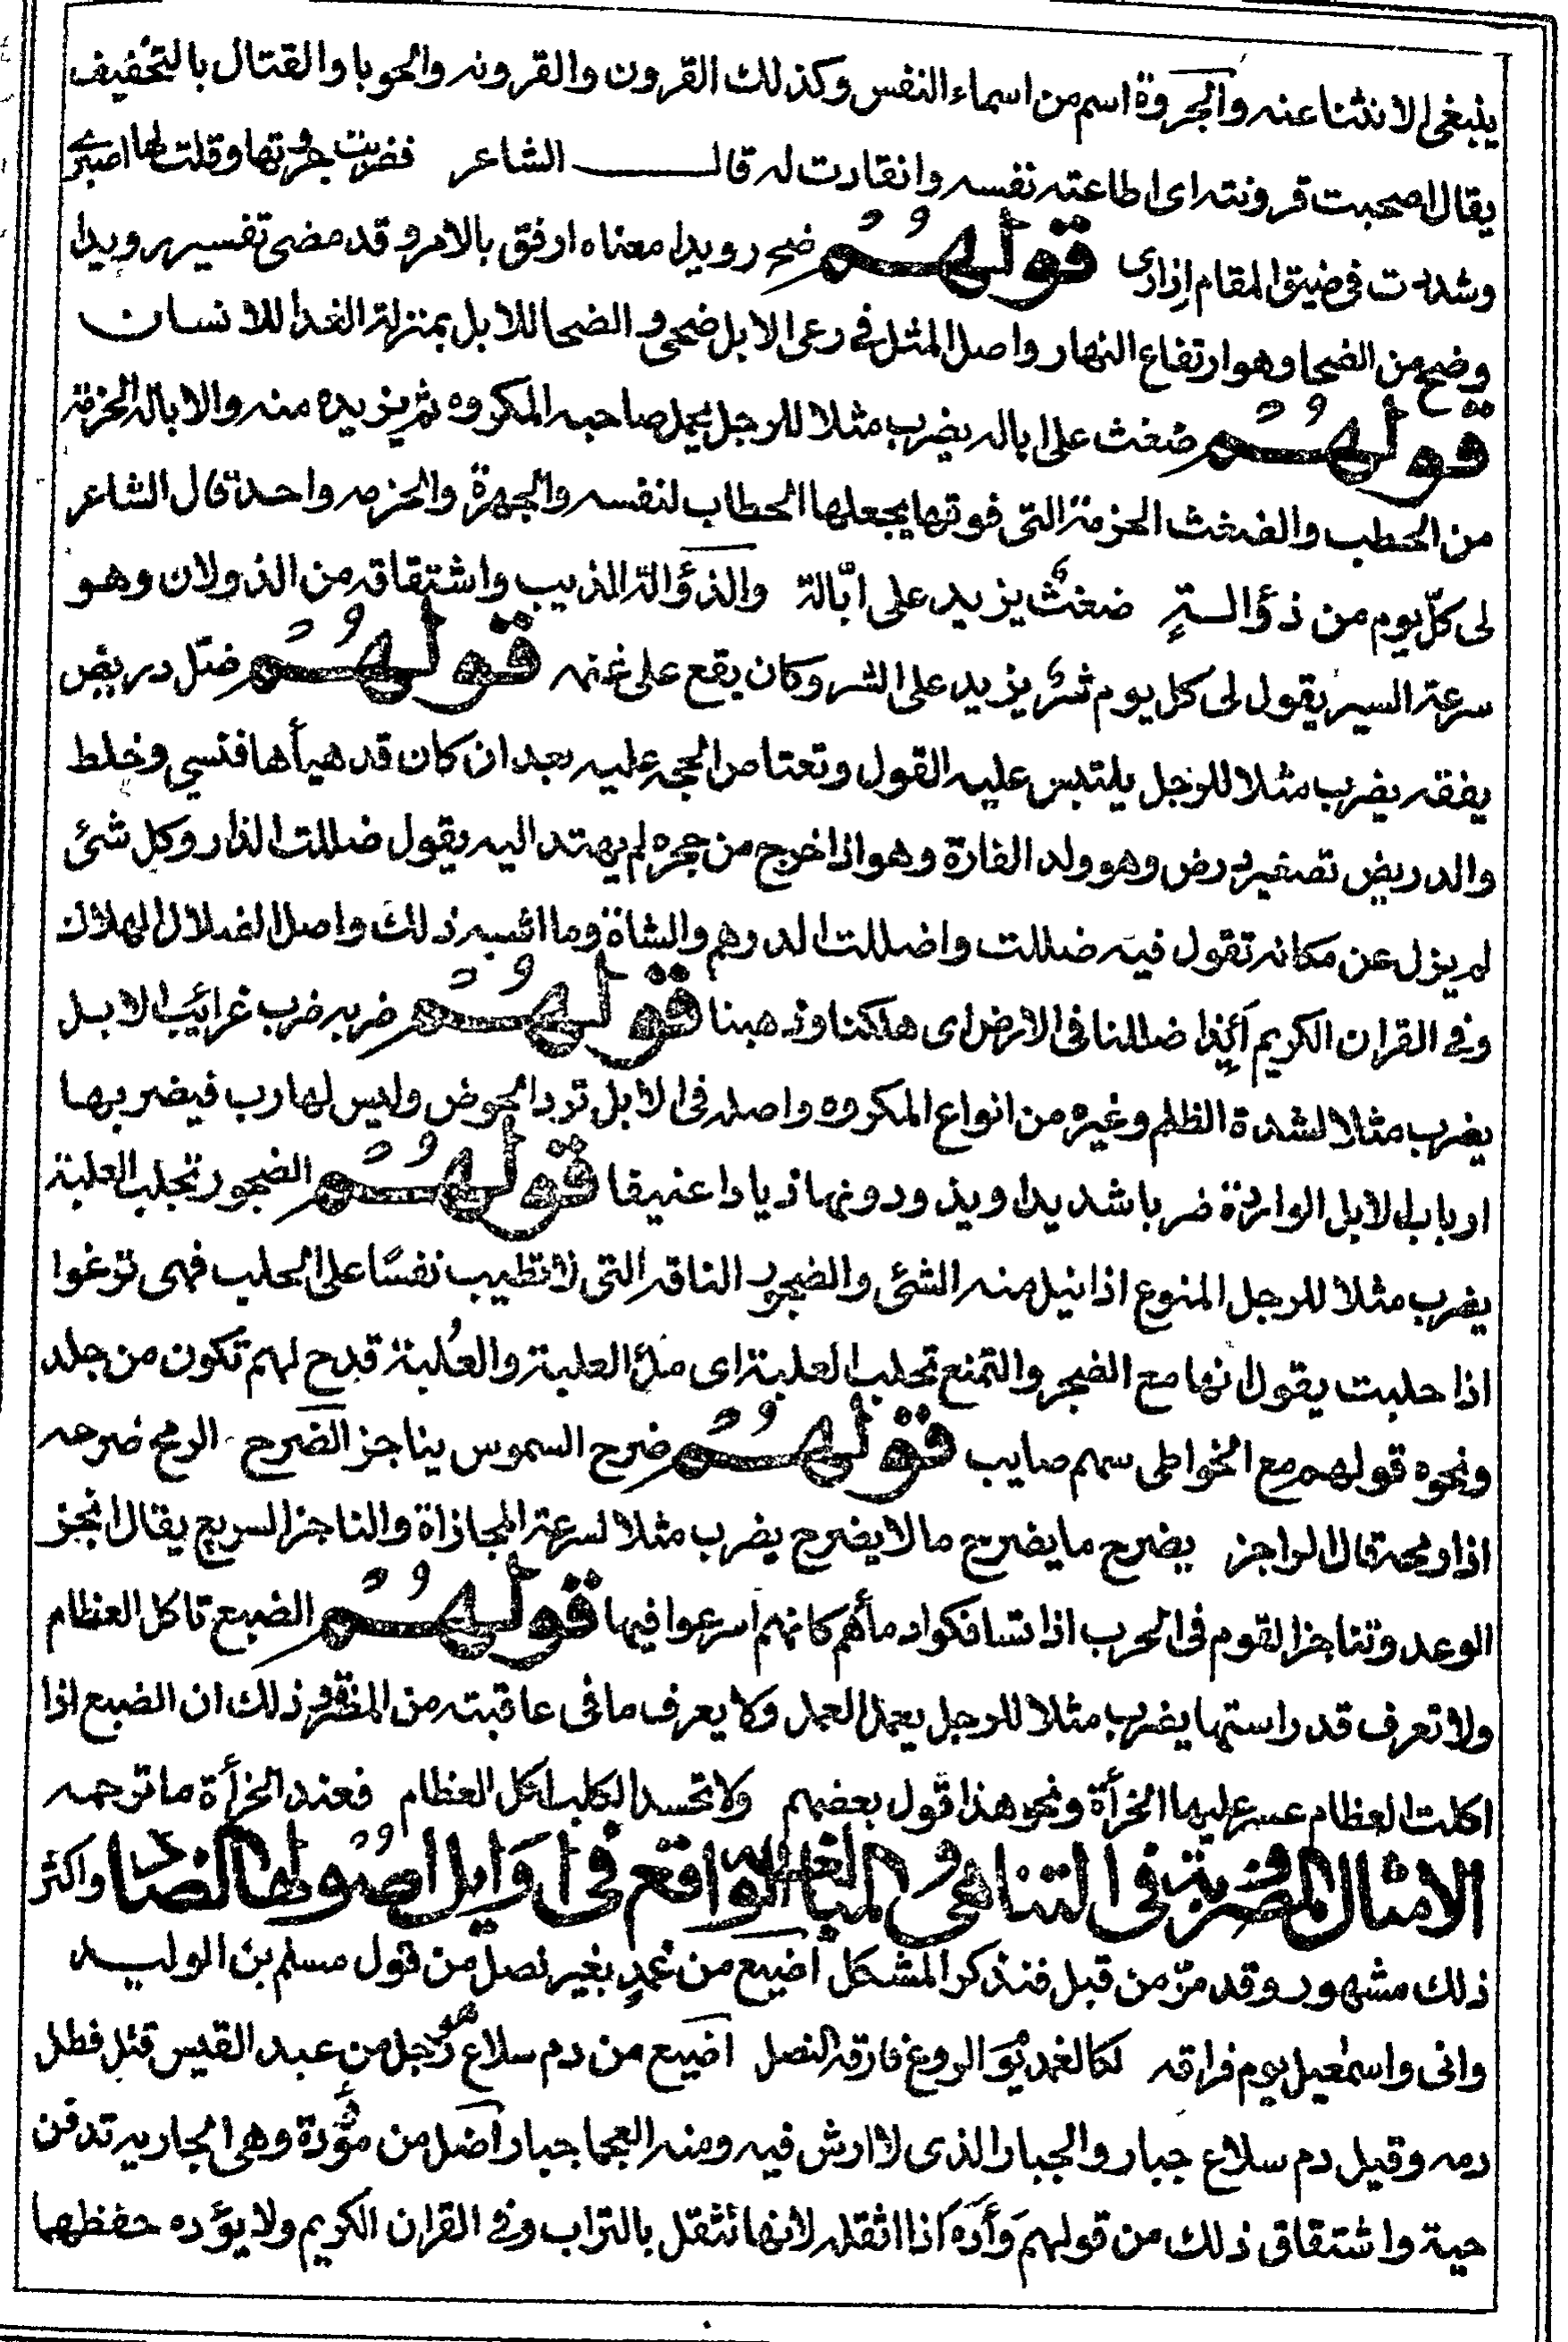 ينبغي الانثنا عنه والجروة اسم من اسماء النفس وكذلك القرون والقرونه والحوبا والقتال بالتخفيف
يقال اصحبت قرونته اى اطاعته نفسه وانقادت له قال الشاعر فضربت جروتها وقلت لها اصبري
وشددت فى ضيق المقام إزارى قولهُم ضح رويدا معناه ارفق بالامر وقد مضى تفسير رويدا
وضح من الضحا وهو ارتفاع النهار واصل المثل في رعى الابل ضحى والضحا للابل بمنزلة الغدا للانسان
قولهُم ضغث على اباله يضرب مثلا للرجل يحمل صاحبه المكروه ثم يزيده منه والاباله الحزمة
من الحطب والضغث الحزمة التى فوقها يجعلها الحطاب لنفسه والجهرة والحزمه واحدة قال الشاعر
لى كلّ يوم من ذؤالــةٍ ضغثٌ يزيد على ابّالة والذؤالة الذيب واشتقاقه من الذولان وهو
سرعة السير يقول لى كل يوم شرٌ يزيد على الشر وكان يقع على غنمه قولهُم ضلّ دريض
يفقه يضرب مثلا للرجل يلتبس عليه القول وتعتاص الحجه عليه بعد ان كان قد هيأها فنسي وخلط
والدريض تصغير درض وهو ولد الفارة وهو اذا خرج من جحره لم يهتد اليه يقول ضللت الدار وكل شئ
لم يزل عن مكانه تقول فيه ضللت واضللت الدرهم والشاة وما اشبه ذلك واصل الضلال الهلاك
وفي القران الكريم أئذا ضللنا فى الارض اى هلكنا وذهبنا قولهُم ضربه ضرب غرائب الابل
يضرب مثلا لشدة الظلم وغيره من انواع المكروه واصله فى الابل ترد الحوض وليس لها رب فيضربها
ارباب الابل الواردة ضربا شديدا ويذودونها ذيادا عنيفا قولهُم الضجور تحلب العلبة
يضرب مثلا للرجل المنوع اذا نيل منه الشئ والضجور الناقه التى لا تطيب نفسًا على الحلب فهى ترغوا
اذا حلبت يقول انها مع الضجر والتمنع تحلب العلبة اى ملأ العلبة والعُلبة قدح لهم تكون من جلد
ونحوه قولهم مع الخواطى سهم صايب قولهُم ضرح السموس يناجز الضرح الرمح ضرحه
اذا رمحه قال الراجز يضرح ما يضرح ما لا يضرح يضرب مثلا لسرعة المجازاة والناجز السريع يقال انجز
الوعد وتناجز القوم فى الحرب اذا تسافكوا دمأهم كانهم اسرعوا فيها قولهُم الضبع تاكل العظام
ولا تعرف قدر استها يضرب مثلا للرجل يعمل العمل ولا يعرف ما فى عاقبته من المضرة وذلك ان الضبع اذا
اكلت العظام عسر عليها الخرأة ونحو هذا قول بعضهم ولا تحسد الكلب اكل العظام فعند الخرأة ما ترحمه
الامثال المضروبة فى التناهى والمبالغه الواقع فى اوايل اصُولها الضاد واكثر
ذلك مشهور وقد مرّ من قبل فنذكر المشكل اضيع من غمدٍ بغير نصل من قول مسلم بن الوليد
وانى واسمعيل يوم فراقه لكالغمد يَوم الروع فارقه النصل اضيع من دم سلاع هو رجل من عبد القيس قتل فطل
دمه وقيل دم سلاع جبار والجبار الذى لا ارش فيه ومنه العجما جبار اضل من موؤدة وهى الجاريه تدفن
حية واشتقاق ذلك من قولهم وَأَدَه اذا اثقله لانها تثقل بالتراب وفي القران الكريم ولا يؤده حفظهما